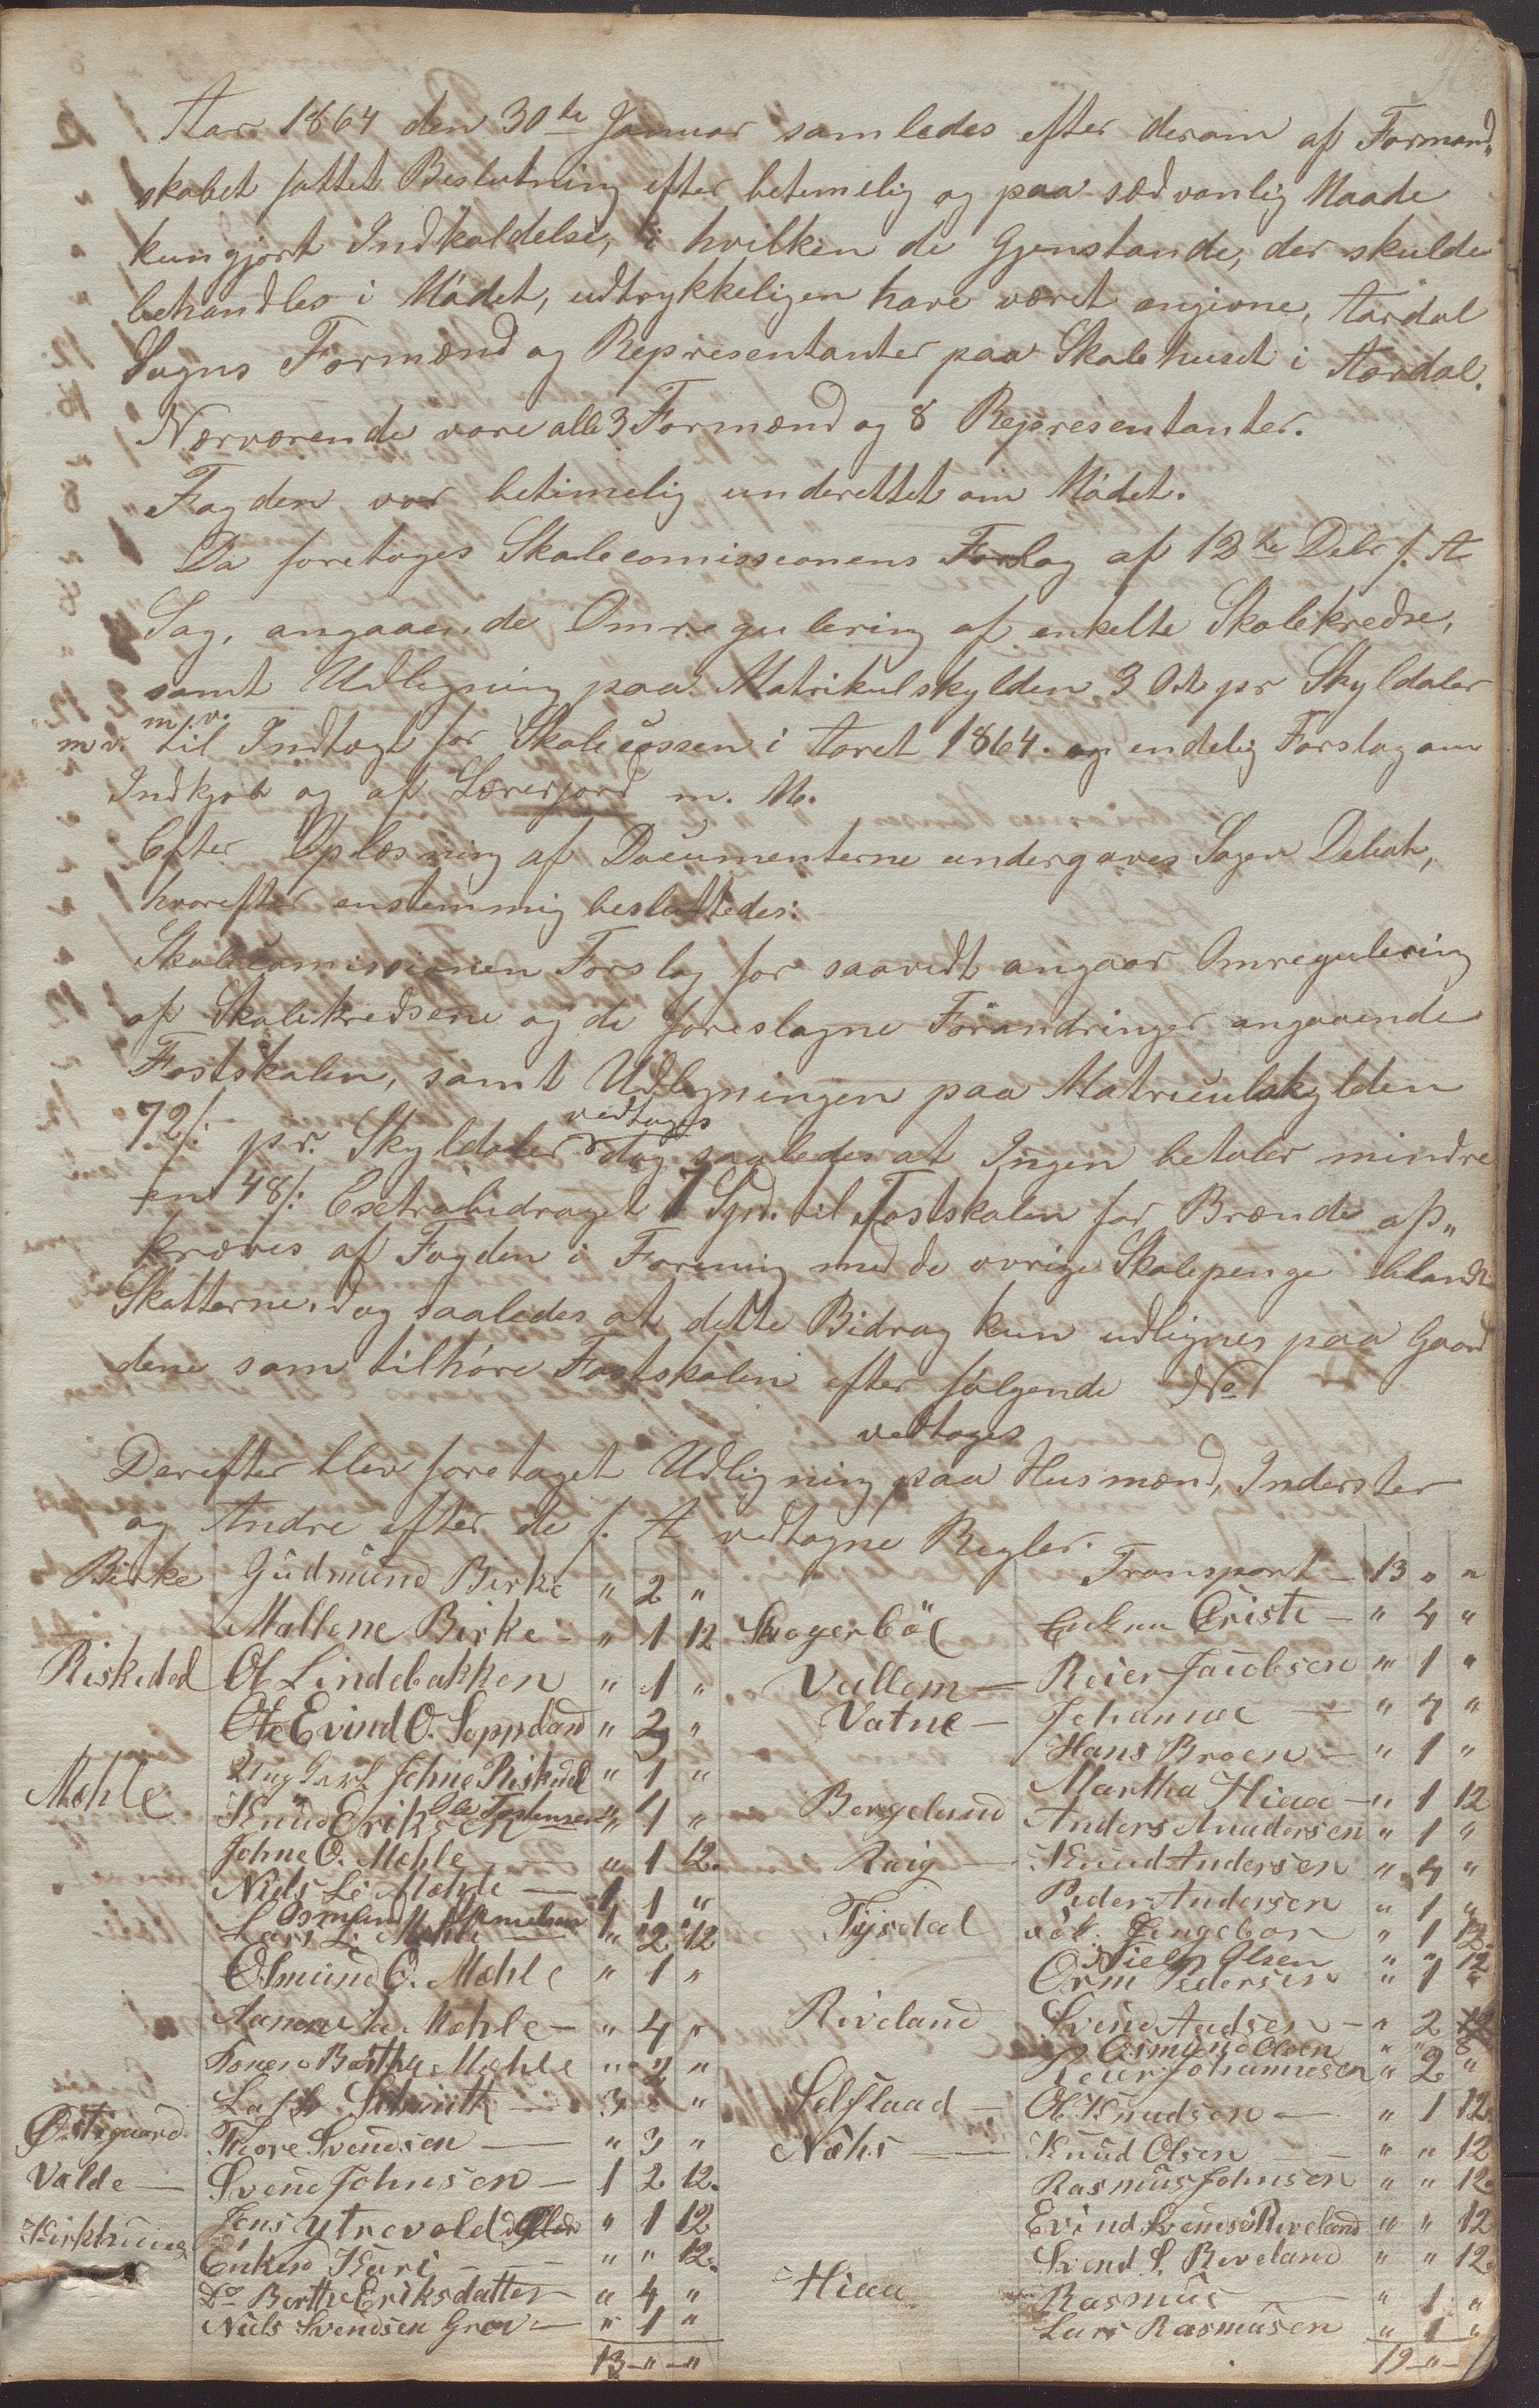 Aar 1864 den 30te Januar samledes efter derom af Formand„
skabet fattet Beslutning efter betimelig og paa sædvanlig Maade
kungjort Indkaldelse, i hvilken de Gjenstande, der skulde
behandles i Mödet, udtrykkeligen have været angivne, Aardal
Sogns Formænd og Representanter paa Skolehuset i Aardal.
Nærværende vare alle 3 Formænd og 8 Representanter.
Fogden var betimelig underettet om Mödet.
Da foretoges Skolecomissionens Forslag af 12te Debr f. A
Sag, angaaende Omregulering af enkelte Skolekredse,
samt Udligning paa Matrikulskylden 3 Ort pr Skyldaler
m. v. til Indtægt for Skolecassen i Aaret 1864. og endelig Forslag om
Indkjöb og af Lærerjord m. M.
Efter Oplæsning af Documenterne undergaves Sagen Debat,
hvorefter enstemmig besluttedes:
Skolecomissionen Forslag for saavidt angaar Omregulering
af Skolekredsene og de foreslagne Forandringer angaaende
Fastskolen, samt Udligningen paa Matriculskylden
72/: pr. Skyldaler vedtoges dog saaledes at Ingen betaler mindre
en 48/: Exstrabidraget 7 Spd. til Fastskolen for Brænde af„
kræves af Fogden i Forening med de övrige Skolepenge iblandt
Skatterne, dog saaledes at dette Bidrag kun udlignes paa Gaar
dene som tilhöre Fastskolen efter fölgende No
vedtoges
Derefter blev foretaget Udligning paa Husmænd, Inderster
og Andre efter de f. A vedtagne Regler.
Birke Gudmund Birke " 2 "
Mallene Birke - " 1 12
Riskedal Ol Lindebakken " 1 "
Ole Evind O. Soppeland " 2 "
Johne Riskedal " 1 "
Mæhle Knud Eriksen " 1 "
Johne O. Mæhle " 1 12.
Niels L: Mæhle — 1 1 "
Lars L: Mæhle — " 2 12
Osmund O. Mæhle " 1 "
Mæhle — " 4 "
Berthe Mæhle " 2 "
3 " "
Östigaard Thore Svendsen — " 3 "
Valde — Svend Johnsen — 1 2 12.
Kirkhuus Jens Ytrevold " 1 12
Enken Kari — " " 12.
Do Berthe Eriksdatter " 4 "
Niels Svendsen Grov — " 1 "
13 — " — "
Transport — 13 " "
Enken Christi — " 4 "
Vallem — Reier Jacobsen " 1 "
Vatne — Johannes — " 4 "
Hans Broen — " 1 "
Martha Hiaa — " 1 12
Bergeland Anders Anndersen " 1 "
Knud Andersen " 4 "
Peder Andersen " 1 "
Tysdal Ingebor " 1 12.
Niels Olsen " " 12
Orm Pedersen " 1 "
Riveland Svend Aadsen — " 2
Osmund Olsen " " 8
Reier Johannesen " 2 "
Selflaad — Ol Knudsen — " 1 12.
Næhs — Knud Olsen — " " 12
Rasmus Johnsen " " 12.
Evind Svendsen Riveland " " 12
Svend S. Riveland " " 12.
Hiaa Rasmus — " 1 "
Lars Rasmusen " 1 "
19 — " —